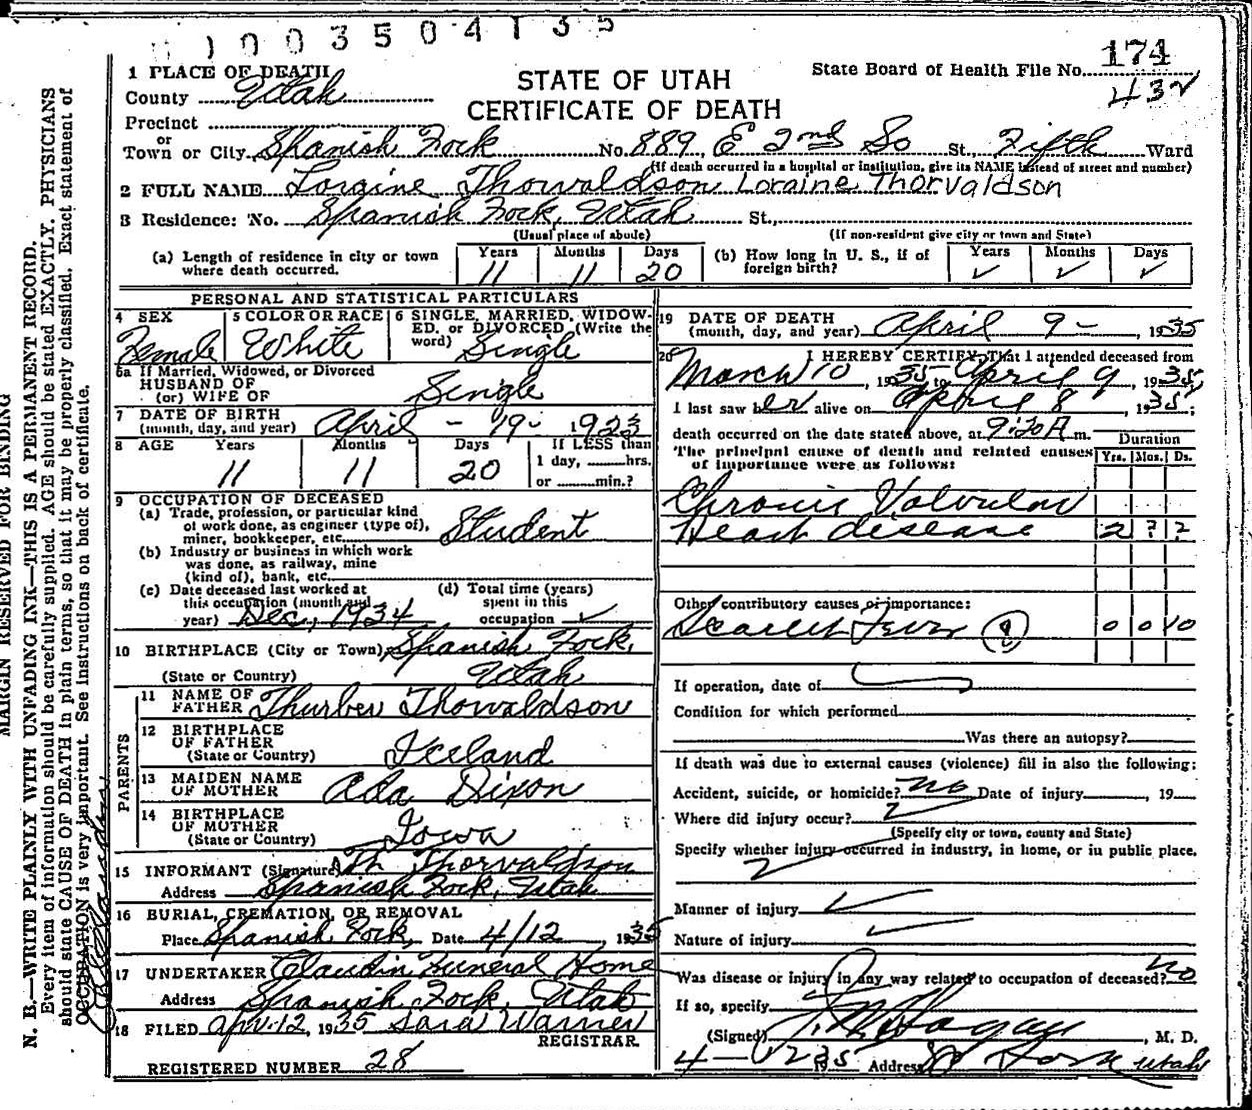 1003504135
174
432
STATE OF UTAH
CERTIFICATE OF DEATH
State Board of Health File No.
1 PLACE OF DEATH
County Utah
Precinct
or
Town or City Spanish Fork No. 889, E 2nd So St., Fifth Ward
(If death occurred in a hospital or institution, give its NAME instead of street and number)
2 FULL NAME Loraine Thorvaldson Loraine Thorvaldson
3 Residence: No. Spanish Fork, Utah St.,
(Usual place of abode) (If non-resident give city or town and State)
(a) Length of residence in city or town where death occurred. Years 11 Months 11 Days 20
(b) How long in U. S., if of foreign birth? Years ✓ Months ✓ Days ✓
PERSONAL AND STATISTICAL PARTICULARS
4 SEX Female
5 COLOR OR RACE White
6 SINGLE, MARRIED, WIDOWED, or DIVORCED (Write the word) Single
6a If Married, Widowed, or Divorced
HUSBAND OF
(or) WIFE OF Single
7 DATE OF BIRTH
(month, day, and year) April - 19 - 1923
8 AGE Years 11 Months 11 Days 20 If LESS than 1 day, hrs. or min.?
9 OCCUPATION OF DECEASED
(a) Trade, profession, or particular kind of work done, as engineer (type of), miner, bookkeeper, etc. Student
(b) Industry or business in which work was done, as railway, mine (kind of), bank, etc.
(c) Date deceased last worked at this occupation (month and year) Dec, 1934
(d) Total time (years) spent in this occupation ✓
10 BIRTHPLACE (City or Town) Spanish Fork,
(State or Country) Utah
PARENTS
11 NAME OF FATHER Thurber Thorvaldson
12 BIRTHPLACE OF FATHER
(State or Country) Iceland
13 MAIDEN NAME OF MOTHER Ada Dixon
14 BIRTHPLACE OF MOTHER
(State or Country) Iowa
15 INFORMANT (Signature) Th Thorvaldson
Address Spanish Fork, Utah
16 BURIAL, CREMATION, OR REMOVAL
Place Spanish Fork, Date 4/12 1935
17 UNDERTAKER Claudin Funeral Home
Address Spanish Fork, Utah
18 FILED Apr. 12, 1935 Sara Warner
REGISTRAR.
REGISTERED NUMBER 28
19 DATE OF DEATH
(month, day, and year) April 9 - , 1935
20 I HEREBY CERTIFY, That I attended deceased from
March 10, 1935 to April 9, 1935,
I last saw her alive on April 8, 1935;
death occurred on the date stated above, at 9:20 A m.
The principal cause of death and related causes of importance were as follows:
Duration
Yrs. Mos. Ds.
Chronic Valvular
Heart disease 2 ? ?
Other contributory causes of importance:
Scarlet Fever 8 0 0 10
If operation, date of
Condition for which performed
Was there an autopsy?
If death was due to external causes (violence) fill in also the following:
Accident, suicide, or homicide? no Date of injury , 19
Where did injury occur?
(Specify city or town, county and State)
Specify whether injury occurred in industry, in home, or in public place.
Manner of injury ✓
Nature of injury
Was disease or injury in any way related to occupation of deceased? no
If so, specify
(Signed) Hagan, M. D.
4-12 1935 Address Sp Fork Utah
MARGIN RESERVED FOR BINDING
N. B.—WRITE PLAINLY WITH UNFADING INK—THIS IS A PERMANENT RECORD.
Every item of information should be carefully supplied. AGE should be stated EXACTLY. PHYSICIANS
should state CAUSE OF DEATH in plain terms, so that it may be properly classified. Exact statement of
OCCUPATION is very important. See instructions on back of certificate.